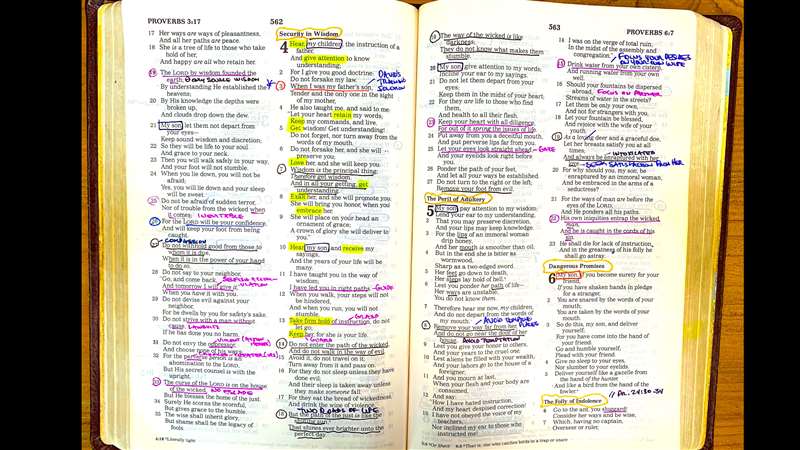 PROVERBS 3:17
562
17 Her ways are ways of pleasantness,
And all her paths are peace.
18 She is a tree of life to those who take
hold of her,
And happy are all who retain her.
19 The LORD by wisdom founded the
earth;
By understanding He established the
heavens;
20 By His knowledge the depths were
broken up,
And clouds drop down the dew.
21 My son, let them not depart from
your eyes—
Keep sound wisdom and discretion;
22 So they will be life to your soul
And grace to your neck.
23 Then you will walk safely in your way,
And your foot will not stumble.
24 When you lie down, you will not be
afraid;
Yes, you will lie down and your sleep
will be sweet.
25 Do not be afraid of sudden terror,
Nor of trouble from the wicked when
it comes;
26 For the LORD will be your confidence,
And will keep your foot from being
caught.
COMPASSION
27 Do not withhold good from those to
whom it is due,
When it is in the power of your hand
to do so.
28 Do not say to your neighbor,
"Go, and come back,
And tomorrow I will give it,"
When you have it with you.
29 Do not devise evil against your
neighbor,
For he dwells by you for safety's sake.
30 Do not strive with a man without
cause,
LAWSUITS
If he has done you no harm.
31 Do not envy the oppressor,
And choose none of his ways;
32 For the perverse person is an
abomination to the LORD,
But His secret counsel is with the
upright.
33 The curse of the LORD is on the house
of the wicked,
But He blesses the home of the just.
34 Surely He scorns the scornful,
But gives grace to the humble.
35 The wise shall inherit glory,
But shame shall be the legacy of
fools.
Security in Wisdom
4 Hear, my children, the instruction of a
father,
And give attention to know
understanding;
2 For I give you good doctrine:
Do not forsake my law.
DAVID'S
TEACHING
SOLOMON
3 When I was my father's son,
Tender and the only one in the sight
of my mother,
4 He also taught me, and said to me:
"Let your heart retain my words;
Keep my commands, and live.
5 Get wisdom! Get understanding!
Do not forget, nor turn away from the
words of my mouth.
6 Do not forsake her, and she will
preserve you;
Love her, and she will keep you.
7 Wisdom is the principal thing;
Therefore get wisdom.
And in all your getting, get
understanding.
8 Exalt her, and she will promote you;
She will bring you honor, when you
embrace her.
9 She will place on your head an
ornament of grace;
A crown of glory she will deliver to
you."
10 Hear, my son, and receive my
sayings,
And the years of your life will be
many.
11 I have taught you in the way of
wisdom;
I have led you in right paths.
GUIDE
12 When you walk, your steps will not
be hindered,
And when you run, you will not
stumble.
13 Take firm hold of instruction, do not
let go;
Keep her, for she is your life.
GUARD
14 Do not enter the path of the wicked,
And do not walk in the way of evil.
15 Avoid it, do not travel on it;
Turn away from it and pass on.
16 For they do not sleep unless they have
done evil;
And their sleep is taken away unless
they make someone fall.
17 For they eat the bread of wickedness,
And drink the wine of violence.
TWO ROADS OF LIFE
18 But the path of the just is like the
shining sun,
That shines ever brighter unto the
perfect day.
563
PROVERBS 6:7
19 The way of the wicked is like
darkness;
They do not know what makes them
stumble.
20 My son, give attention to my words;
Incline your ear to my sayings.
21 Do not let them depart from your
eyes;
Keep them in the midst of your heart;
22 For they are life to those who find
them,
And health to all their flesh.
23 Keep your heart with all diligence,
For out of it spring the issues of life.
24 Put away from you a deceitful mouth,
And put perverse lips far from you.
25 Let your eyes look straight ahead,
GAZE
And your eyelids look right before
you.
26 Ponder the path of your feet,
And let all your ways be established.
27 Do not turn to the right or the left;
Remove your foot from evil.
The Peril of Adultery
5 My son, pay attention to my wisdom;
Lend your ear to my understanding,
2 That you may preserve discretion,
And your lips may keep knowledge.
3 For the lips of an immoral woman
drip honey,
And her mouth is smoother than oil;
4 But in the end she is bitter as
wormwood,
Sharp as a two-edged sword.
5 Her feet go down to death,
Her steps lay hold of hell.
6 Lest you ponder her path of life—
Her ways are unstable;
You do not know them.
7 Therefore hear me now, my children,
And do not depart from the words of
my mouth.
AVOID TEMPTING
PLACES
8 Remove your way far from her,
And do not go near the door of her
house,
AVOID TEMPTATION
9 Lest you give your honor to others,
And your years to the cruel one;
10 Lest aliens be filled with your wealth,
And your labors go to the house of a
foreigner;
11 And you mourn at last,
When your flesh and your body are
consumed,
12 And say:
"How I have hated instruction,
And my heart despised correction!
13 I have not obeyed the voice of my
teachers,
Nor inclined my ear to those who
instructed me!
14 I was on the verge of total ruin,
In the midst of the assembly and
congregation."
15 Drink water from your own cistern,
And running water from your own
well.
16 Should your fountains be dispersed
abroad,
Streams of water in the streets?
17 Let them be only your own,
And not for strangers with you.
18 Let your fountain be blessed,
And rejoice with the wife of your
youth.
19 As a loving deer and a graceful doe,
Let her breasts satisfy you at all
times;
INTOXICATED
And always be enraptured with her
love.
20 For why should you, my son, be
enraptured by an immoral woman,
And be embraced in the arms of a
seductress?
21 For the ways of man are before the
eyes of the LORD,
And He ponders all his paths.
22 His own iniquities entrap the wicked
man,
And he is caught in the cords of his
sin.
23 He shall die for lack of instruction,
And in the greatness of his folly he
shall go astray.
Dangerous Promises
6 My son, if you become surety for your
friend,
If you have shaken hands in pledge
for a stranger,
2 You are snared by the words of your
mouth;
You are taken by the words of your
mouth.
3 So do this, my son, and deliver
yourself;
For you have come into the hand of
your friend:
Go and humble yourself;
Plead with your friend.
4 Give no sleep to your eyes,
Nor slumber to your eyelids.
5 Deliver yourself like a gazelle from
the hand of the hunter,
And like a bird from the hand of the
fowler.
The Folly of Indolence
6 Go to the ant, you sluggard!
Consider her ways and be wise,
7 Which, having no captain,
Overseer or ruler,